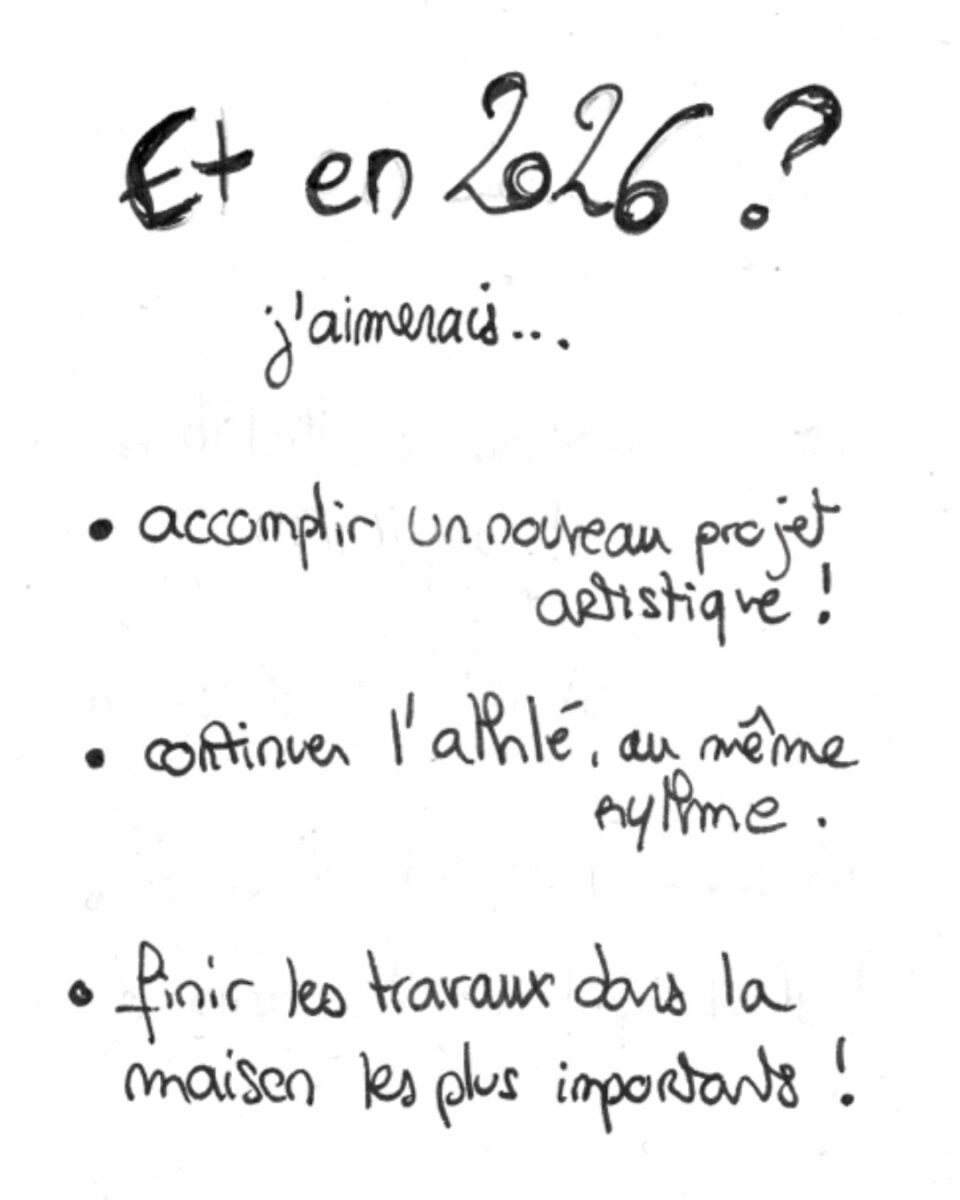 Et en 2026 ?
j'aimerais...
• accomplir un nouveau projet
artistique !
• continuer l'athlé, au même
rythme.
• finir les travaux dans la
maison les plus importants !